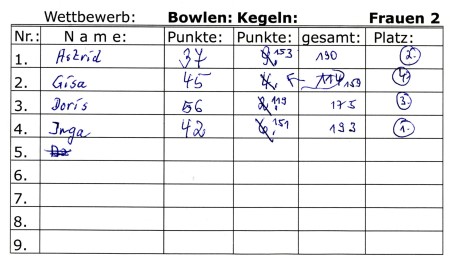 Wettbewerb: Bowlen: Kegeln: Frauen 2
Nr.: Name: Punkte: Punkte: gesamt: Platz:
1. Astrid 37 153 190 2.
2. Gisa 45 114 159 4.
3. Doris 56 119 175 3.
4. Inga 42 151 193 1.
5.
6.
7.
8.
9.